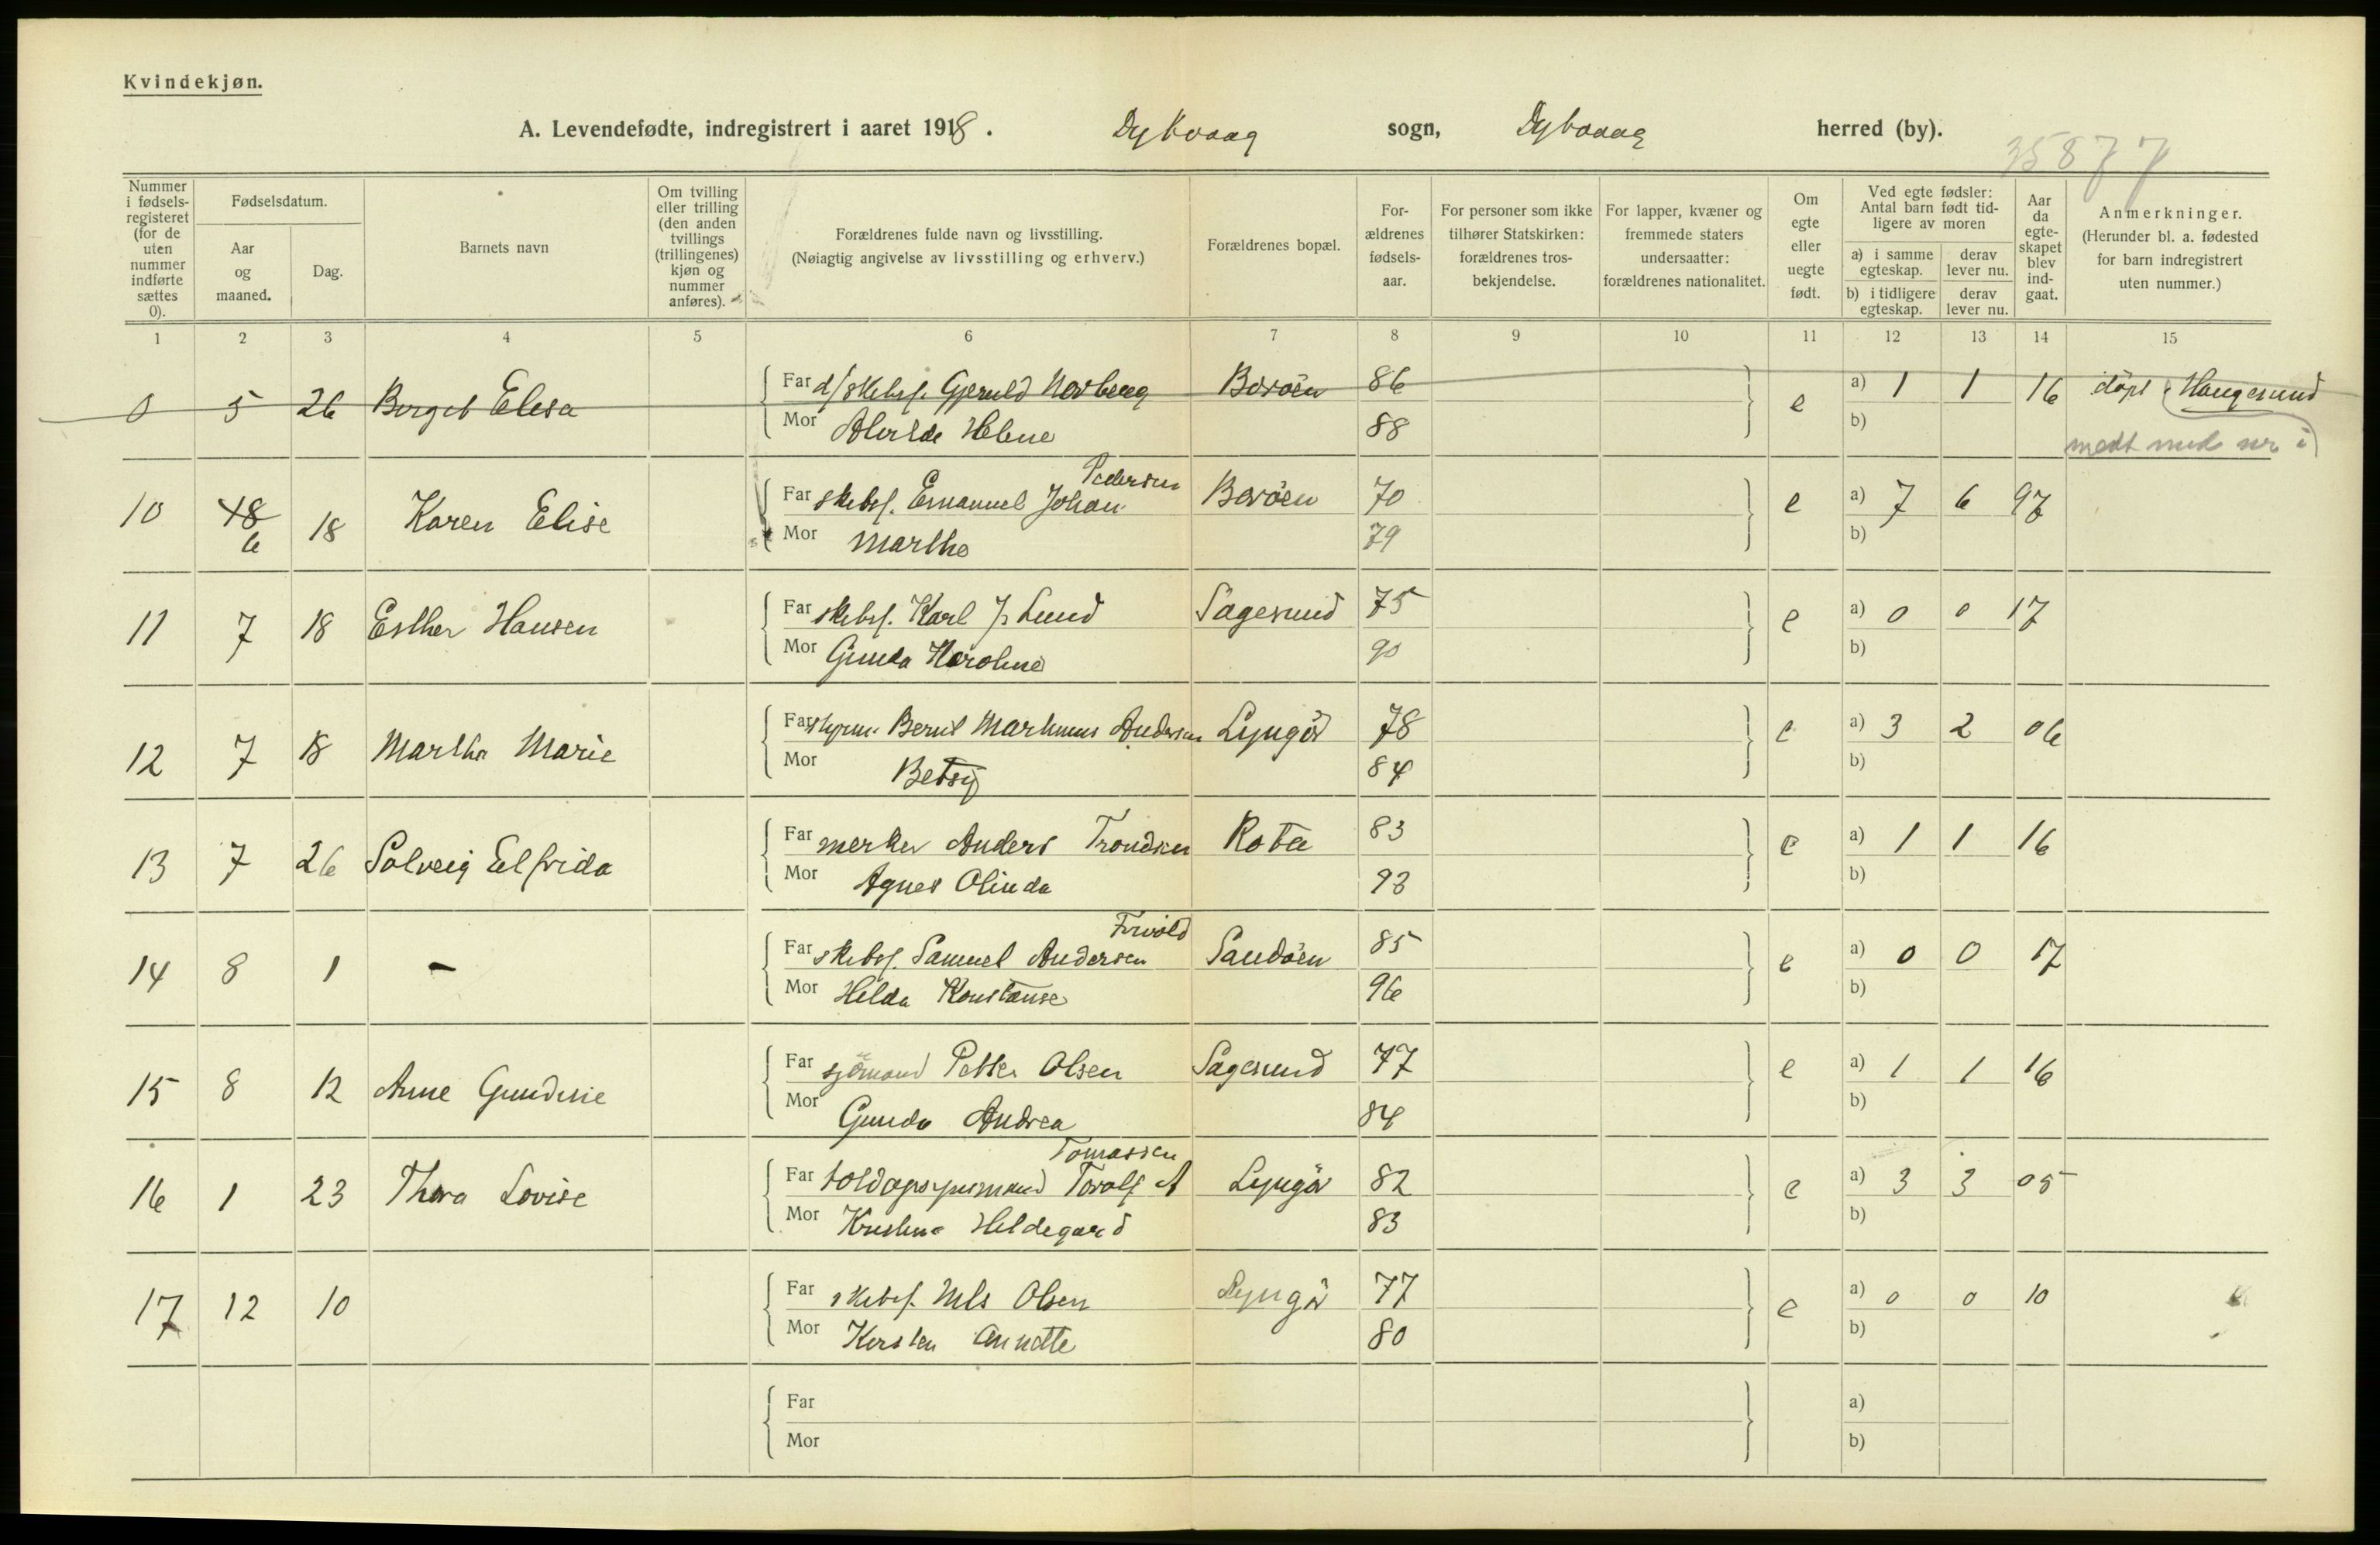 Kvindekjøn.
A. Levendefødte, indregistrert i aaret 1918. Dybvaag sogn, Dybvaag herred (by).
35877
Nummer i fødselsregisteret (for de uten nummer indførte sættes 0).
Fødselsdatum.
Aar og maaned.
Dag.
Barnets navn
Om tvilling eller trilling (den anden tvillings (trillingenes) kjøn og nummer anføres).
Forældrenes fulde navn og livsstilling.
(Nøiagtig angivelse av livsstilling og erhverv.)
Forældrenes bopæl.
Forældrenes fødselsaar.
For personer som ikke tilhører Statskirken: forældrenes trosbekjendelse.
For lapper, kvæner og fremmede staters undersaatter: forældrenes nationalitet.
Om egte eller uegte født.
Ved egte fødsler: Antal barn født tidligere av moren
a) i samme egteskap. derav lever nu.
b) i tidligere egteskap. derav lever nu.
Aar da egteskapet blev indgaat.
Anmerkninger.
(Herunder bl. a. fødested for barn indregistrert uten nummer.)
1 2 3 4 5 6 7 8 9 10 11 12 13 14 15
0 5 26 Borgit Elisa Far d/skibsf. Gjeruld Norberg Borøen 86 e a) 1 1 16 døpt i Haugesund
Mor Alvilde Helene 88 b) medt med nr i
Pedersen
10 48 6 18 Karen Elise Far skibsf. Emanuel Johan Borøen 70 e a) 7 6 97
Mor Marthe 79 b)
11 7 18 Esther Hansen Far skibsf. Karl J. Lund Sagesund 75 e a) 0 0 17
Mor Gunda Karoline 90 b)
12 7 18 Martha Marie Far styrm. Bernt Markinus Andersen Lyngør 78 e a) 3 2 06
Mor Betsy 84 b)
13 7 26 Solveig Elfrida Far merker Anders Trondsen Rota 83 e a) 1 1 16
Mor Agnes Olinda 93 b)
14 8 1 - Far skibsf. Samuel Andersen Sandøen 85 e a) 0 0 17
Mor Hilda Konstanse 96 b)
15 8 12 Anne Gundine Far sjømand Petter Olsen Sagesund 77 e a) 1 1 16
Mor Gunda Andrea 84 b)
Tomassen
16 1 23 Thora Lovise Far toldopsynsmand Toralf A Lyngør 82 e a) 3 3 05
Mor Kristine Hildegard 83 b)
17 12 10 Far skibsf. Nils Olsen Lyngør 77 e a) 0 0 10
Mor Kirsten Annette 80 b)
Far a)
Mor b)